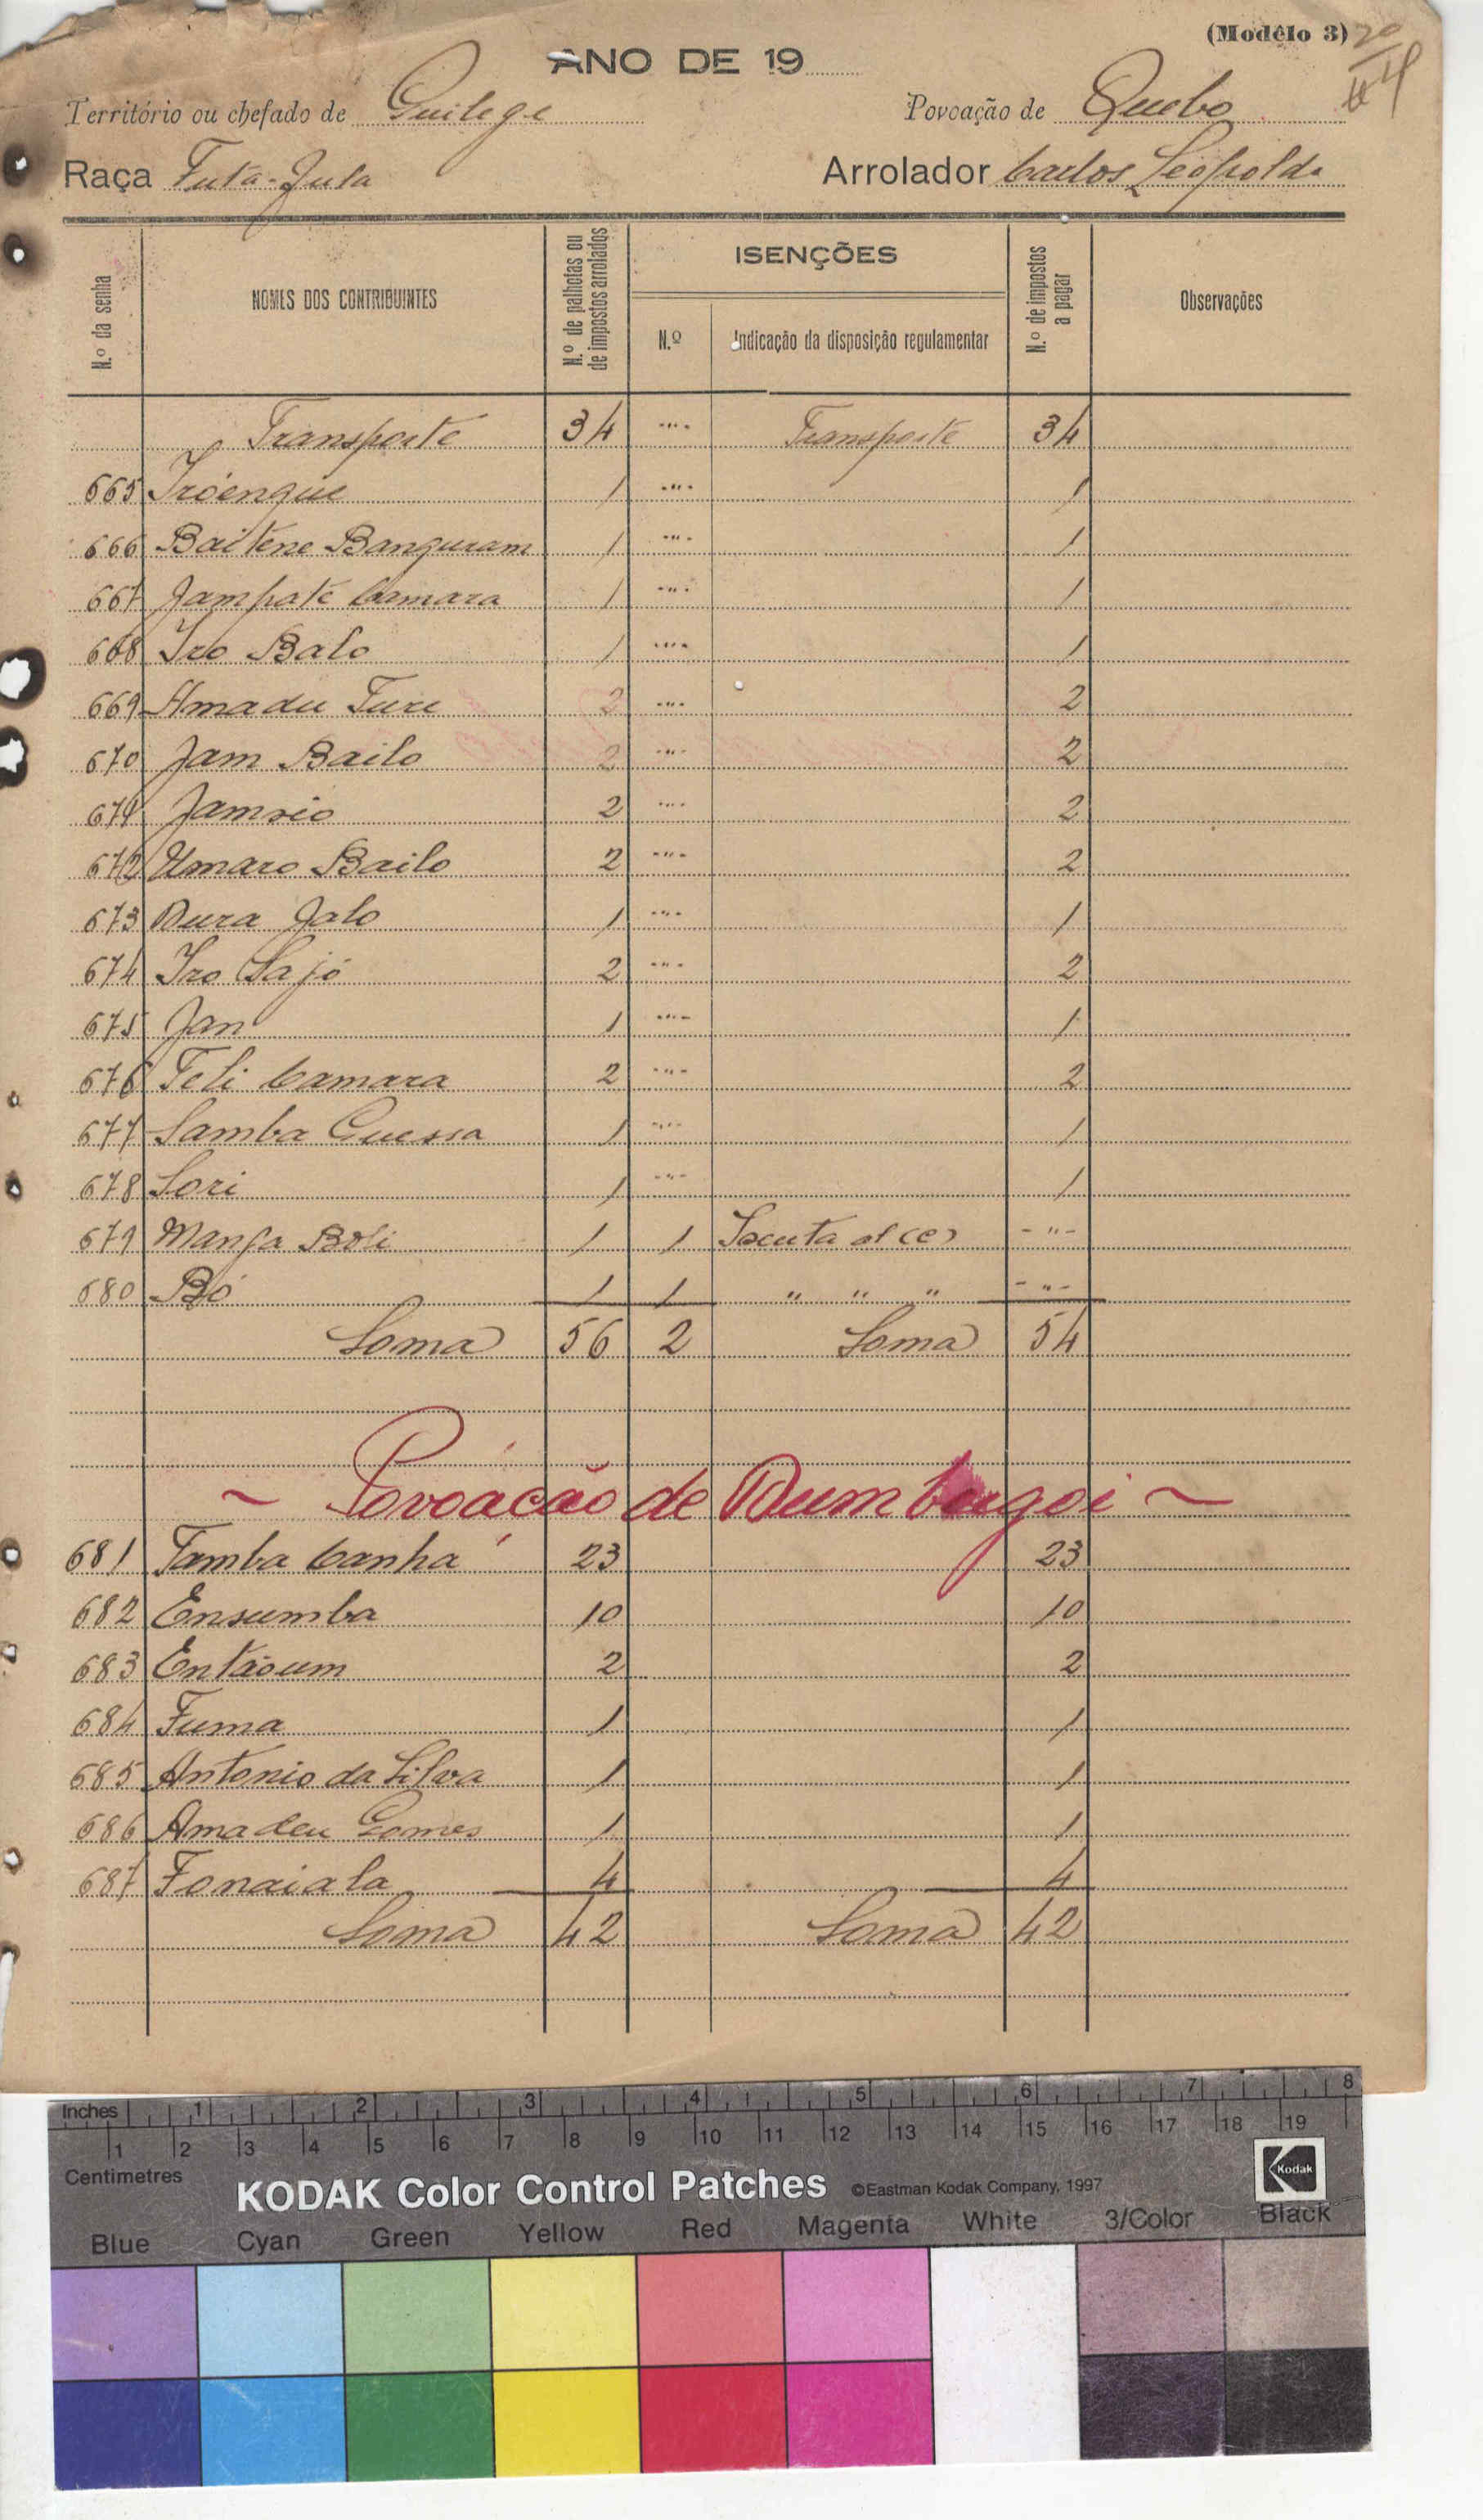 (Modêlo 3)
ANO DE 19
Território ou chefado de Guilege Povoação de Quebo
Raça Futa-Jula Arrolador Carlos Leopoldo
N.º da senha NOMES DOS CONTRIBUINTES N.º de palhotas ou de impostos arrolados ISENÇÕES N.º de impostos a pagar Observações
N.º Indicação da disposição regulamentar
Transporte 34 -"- Transporte 34
665 Iróengue 1 -"- 1
666 Bailene Banguram 1 -"- 1
667 Jampaté Camara 1 -"- 1
668 Iro Balo 1 -"- 1
669 Amadu Ture 2 -"- 2
670 Jam Bailo 2 -"- 2
671 2 -"- 2
672 Umaro Bailo 2 -"- 2
673 Dura Jalo 1 -"- 1
674 Iro Sajó 2 -"- 2
675 Jan 1 -"- 1
676 Teli Camara 2 -"- 2
677 Samba 1 -"- 1
678 Sori 1 -"- 1
679 Manfa Boli 1 1 al (e) -"-
680 Bó 1 1 " " " -"-
Soma 56 2 Soma 54
~ Povoação de ~
681 Tamba Canhá 23 23
682 Ensumba 10 10
683 2 2
684 Fuma 1 1
685 Antonio da Silva 1 1
686 Amadeu Gomes 1 1
687 Fonaiala 4 4
Soma 42 Soma 42
Inches 1 2 3 4 5 6 7 8
1 2 3 4 5 6 7 8 9 10 11 12 13 14 15 16 17 18 19
Centimetres
KODAK Color Control Patches ©Eastman Kodak Company, 1997 Kodak
Blue Cyan Green Yellow Red Magenta White 3/Color Black